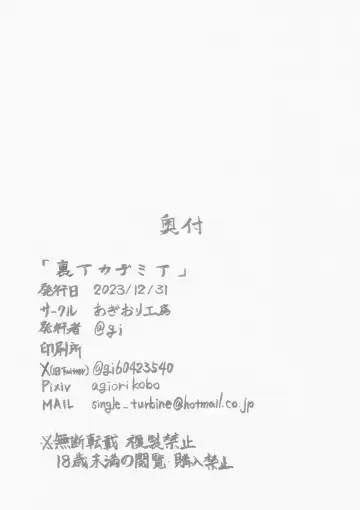 奥付
「裏丁カガミ丁」
発行日 2023/12/31
サークル あぎおり工房
発行者 @gi
印刷所
X(旧Twitter) @gi60423540
Pixiv agiorikobo
MAIL single_turbine@hotmail.co.jp
※無断転載 複製禁止
18歳未満の閲覧 購入禁止